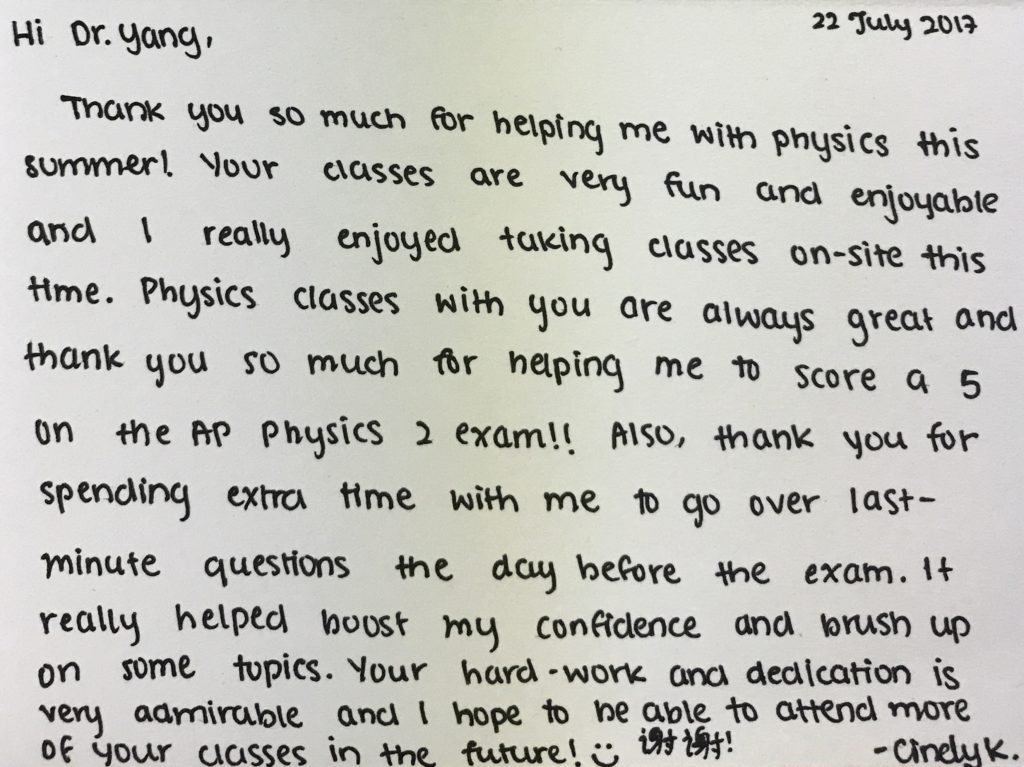 Hi Dr. Yang,
22 July 2017
Thank you so much for helping me with physics this
summer! Your classes are very fun and enjoyable
and I really enjoyed taking classes on-site this
time. Physics classes with you are always great and
thank you so much for helping me to score a 5
on the AP Physics 2 exam!! Also, thank you for
spending extra time with me to go over last-
minute questions the day before the exam. It
really helped boost my confidence and brush up
on some topics. Your hard-work and dedication is
very admirable and I hope to be able to attend more
of your classes in the future! :) 谢谢!
-Cindy K.